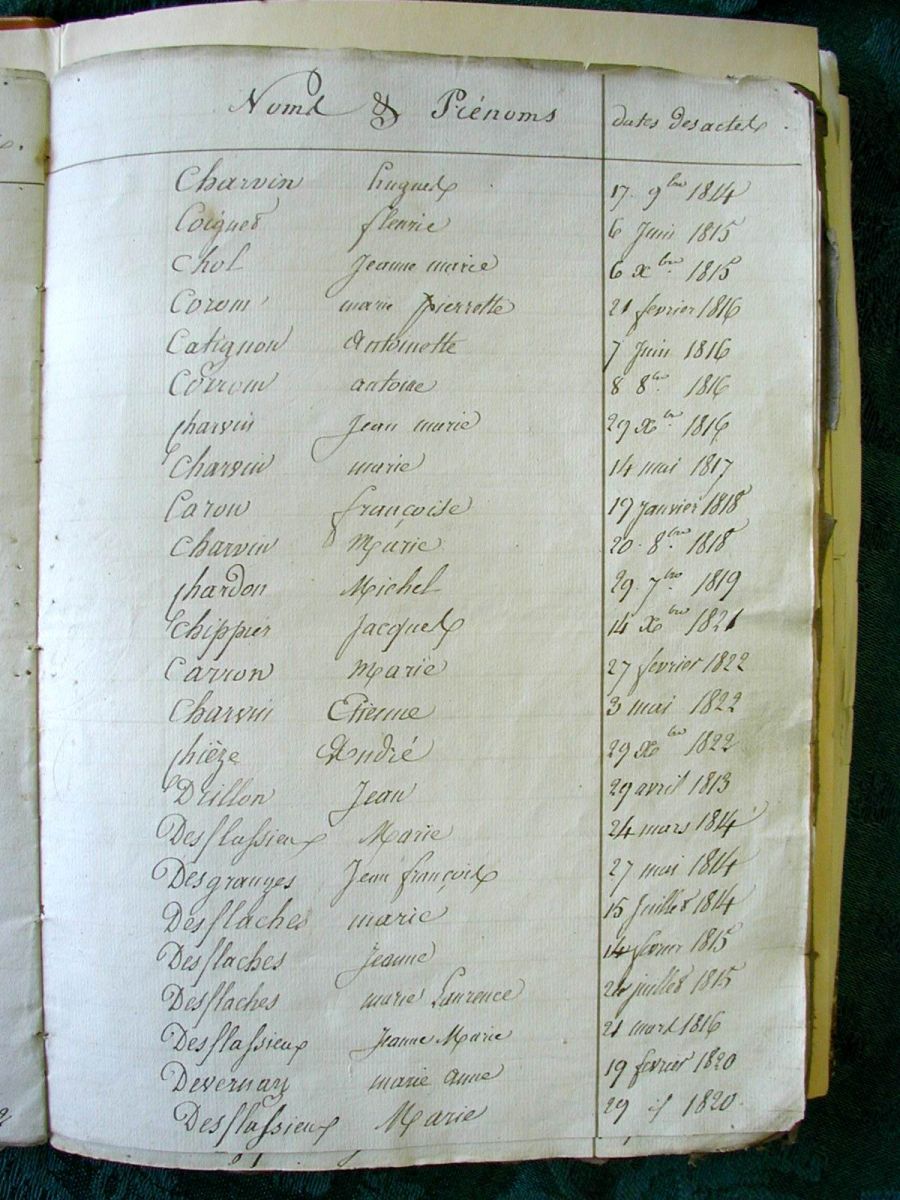 Noms & Prénoms dates des actes.
Charvin hugues 17. 9bre 1814
Coignet fleurie 6 Juin 1815
Chol Jeanne marie 6 Xbre 1815
Corom marie pierrette 21 fevrier 1816
Catignon Antoinette 7 Juin 1816
Corrom antoine 8 8bre 1816
Charvin Jean marie 29 Xbre 1816
Charvin marie 14 mai 1817
Caron françoise 19 Janvier 1818
Charvin Marie 20. 8bre 1818
Chardon Michel 29. 7bre 1819
Chippier Jacques 14 Xbre 1821
Carron Marie 27 fevrier 1822
Charvin Etienne 3 mai 1822
Chièze André 29 Xbre 1822
Drillon Jean 29 avril 1813
Desflassieux Marie 24 mars 1814
Desgranges Jean françois 27 mai 1814
Desflaches marie 15 Juillet 1814
Desflaches Jeanne 14 fevrier 1815
Desflaches marie Laurence juillet 1815
Desflassieux Jeanne Marie 21 mars 1816
Devernay marie anne 19 fevrier 1820
Desflassieux Marie 29 1820.